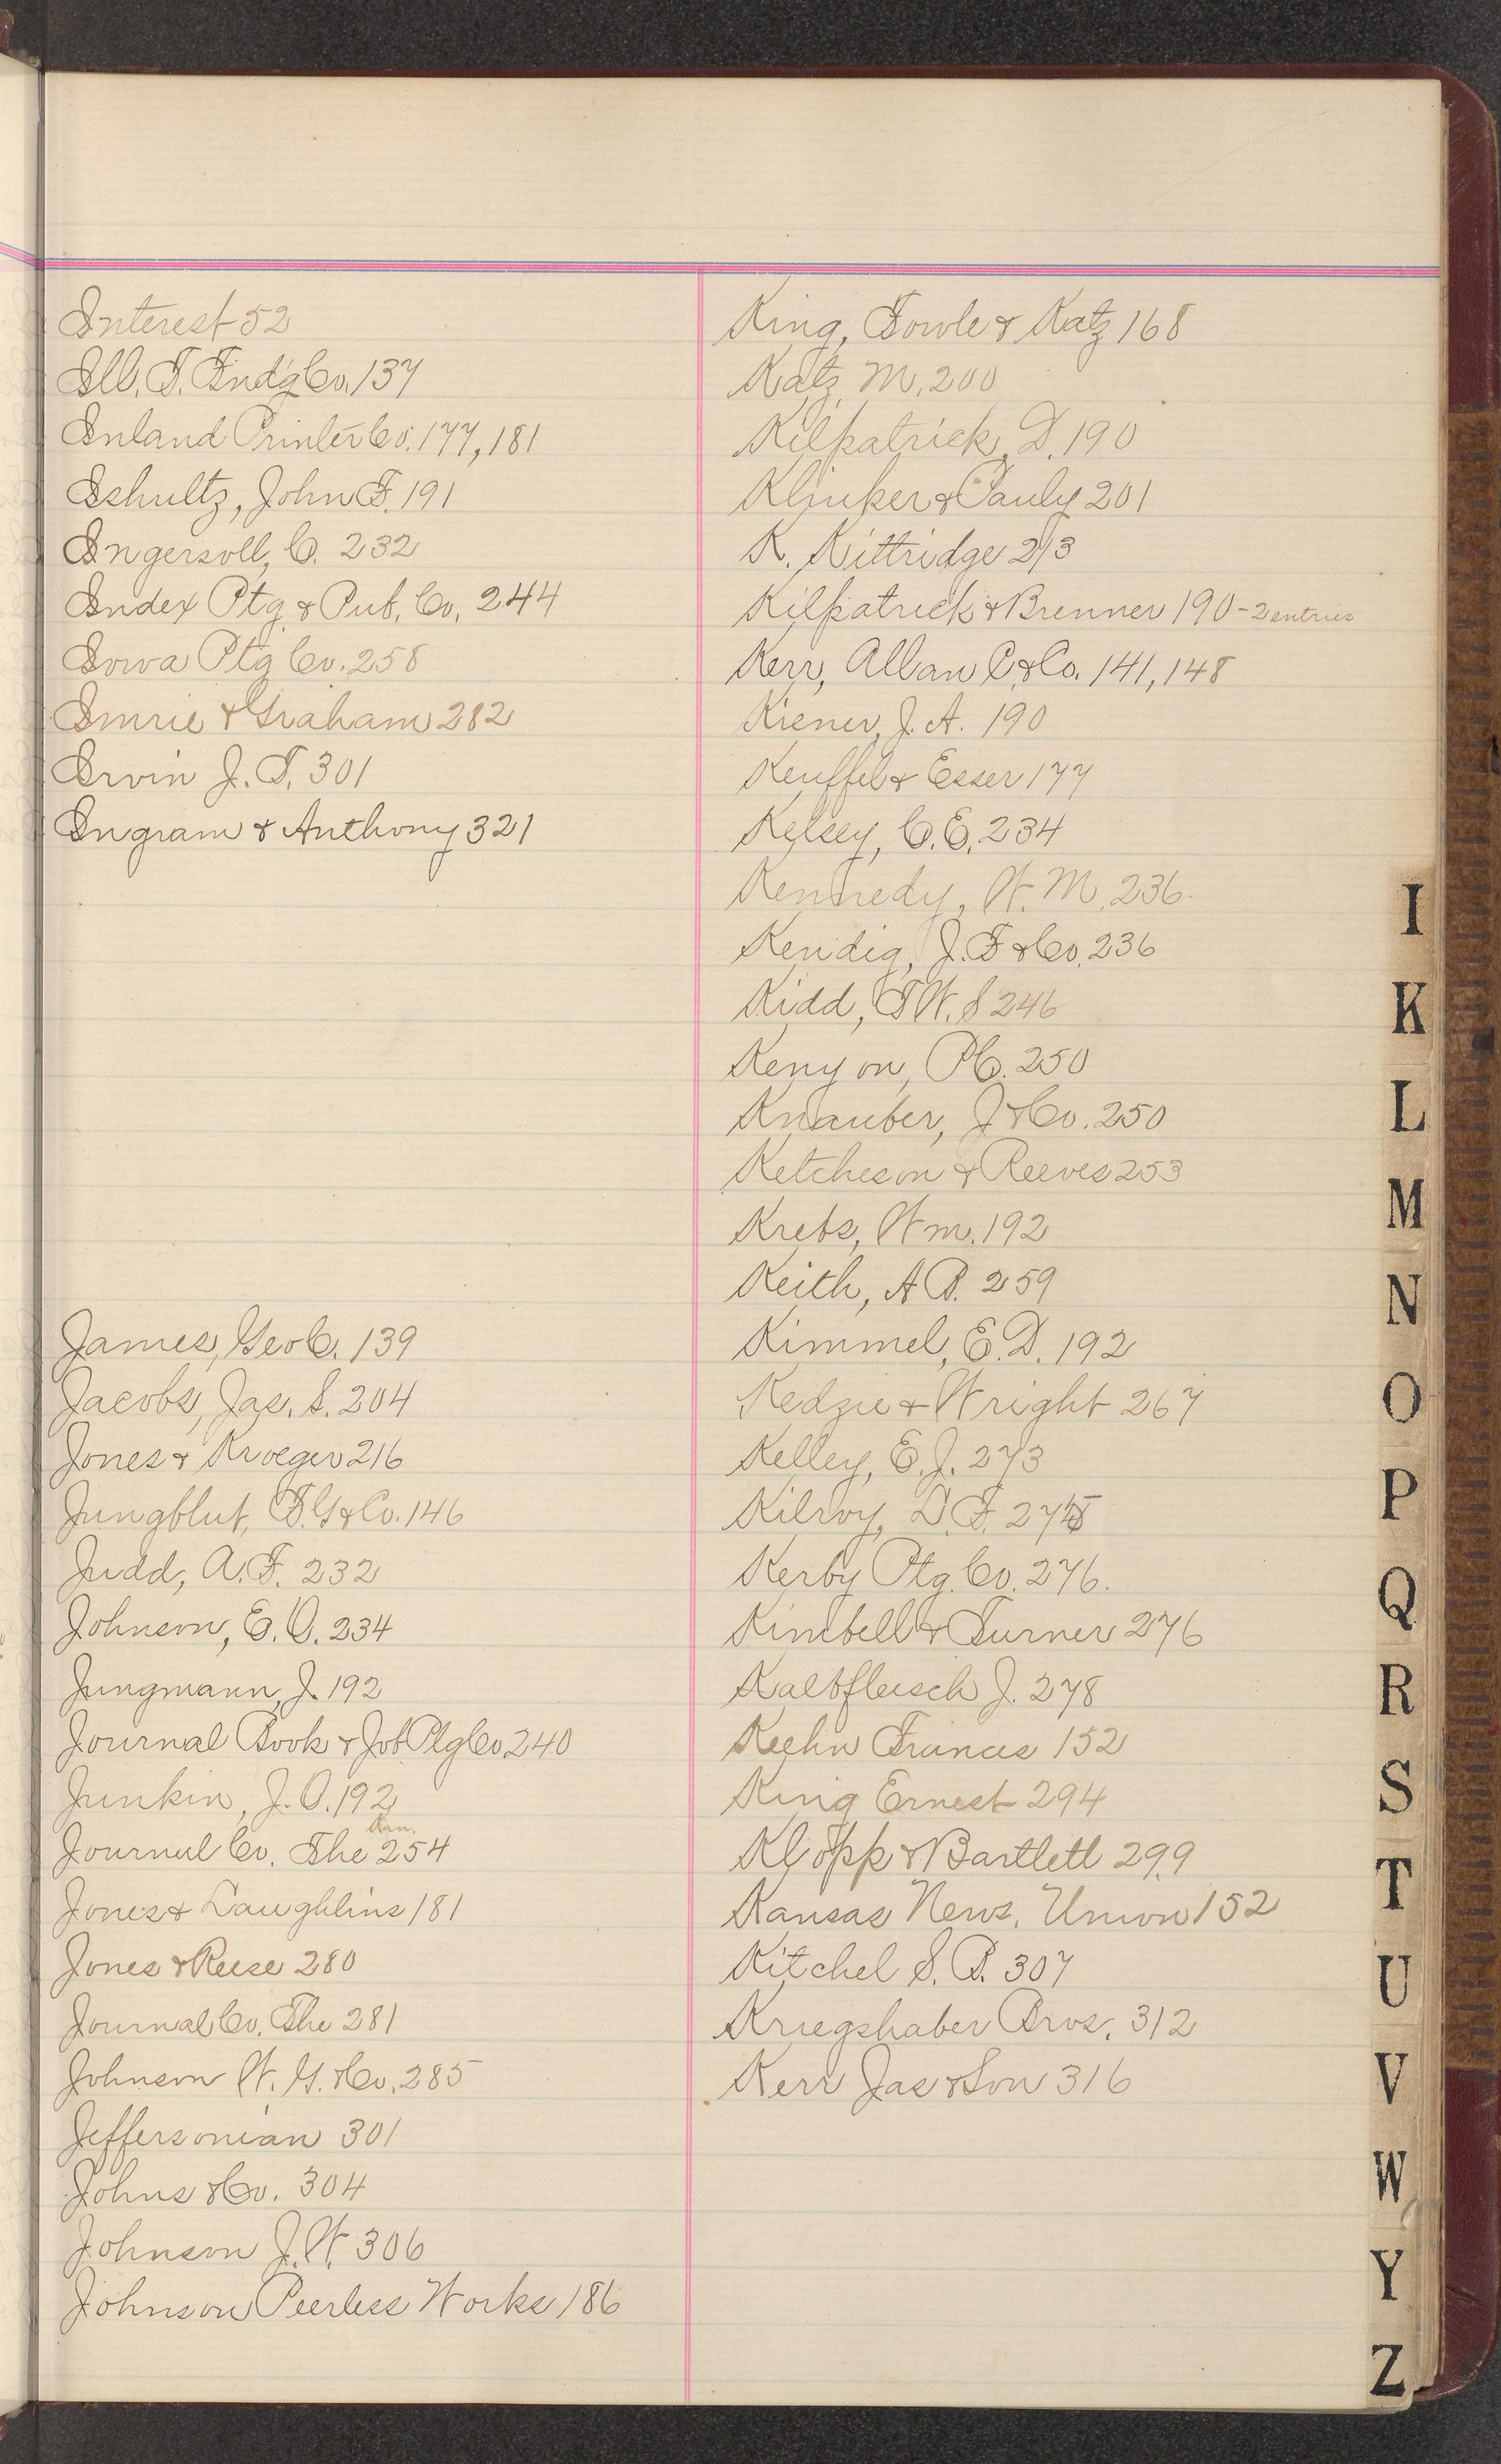 Interest 52
Ill. T. Fndg Co. 137
Inland Printer Co. 177, 181
Ishultz, John F. 191
Ingersoll, C. 232
Index Ptg & Pub. Co. 244
Iowa Ptg Co. 258
Imrie & Graham 282
Irvin J. T. 301
Ingram & Anthony 321
James, Geo C. 139
Jacobs, Jas. S. 204
Jones & Kroeger 216
Jungblut, F. G & Co. 146
Judd, A. F. 232
Johnson, E. O. 234
Jungmann, J. 192
Journal Book & Job Ptg Co 240
Junkin, J. O. 192
Kan.
Journal Co. The 254
Jones & Laughlins 181
Jones & Reese 280
Journal Co. The 281
Johnson W. G. & Co. 285
Jeffersonian 301
Johns & Co. 304
Johnson J. W. 306
Johnson Peerless Works 186
King, Fowle & Katz 168
Katz, M. 200
Kilpatrick, D. 190
Klinker & Pauly 201
K. Kittridge 213
Kilpatrick & Brenner 190 - 2 entries
Kerr, Allan C. & Co. 141, 148
Kiener, J. A. 190
Keuffel & Esser 177
Kelsey, C. E. 234
Kennedy, W. M. 236
Kendig, J. F & Co. 236
Kidd, T W. S 246
Kenyon, P C. 250
Knauber, J & Co. 250
Ketcheson & Reeves 253
Krebs, Wm. 192
Keith, A B. 259
Kimmel, E. D. 192
Kedzie & Wright 267
Kelley, E. J. 273
Kilroy, D. F. 275
Kerby Ptg. Co. 276.
Kimbell & Turner 276
Kalbfleisch J. 278
Keehn Frances 152
King Ernest 294
Klopp & Bartlett 299
Kansas News. Union 152
Kitchel S. B. 307
Kriegshaber Bros. 312
Kerr Jas & Son 316
I
K
L
M
N
O
P
Q
R
S
T
U
V
W
Y
Z